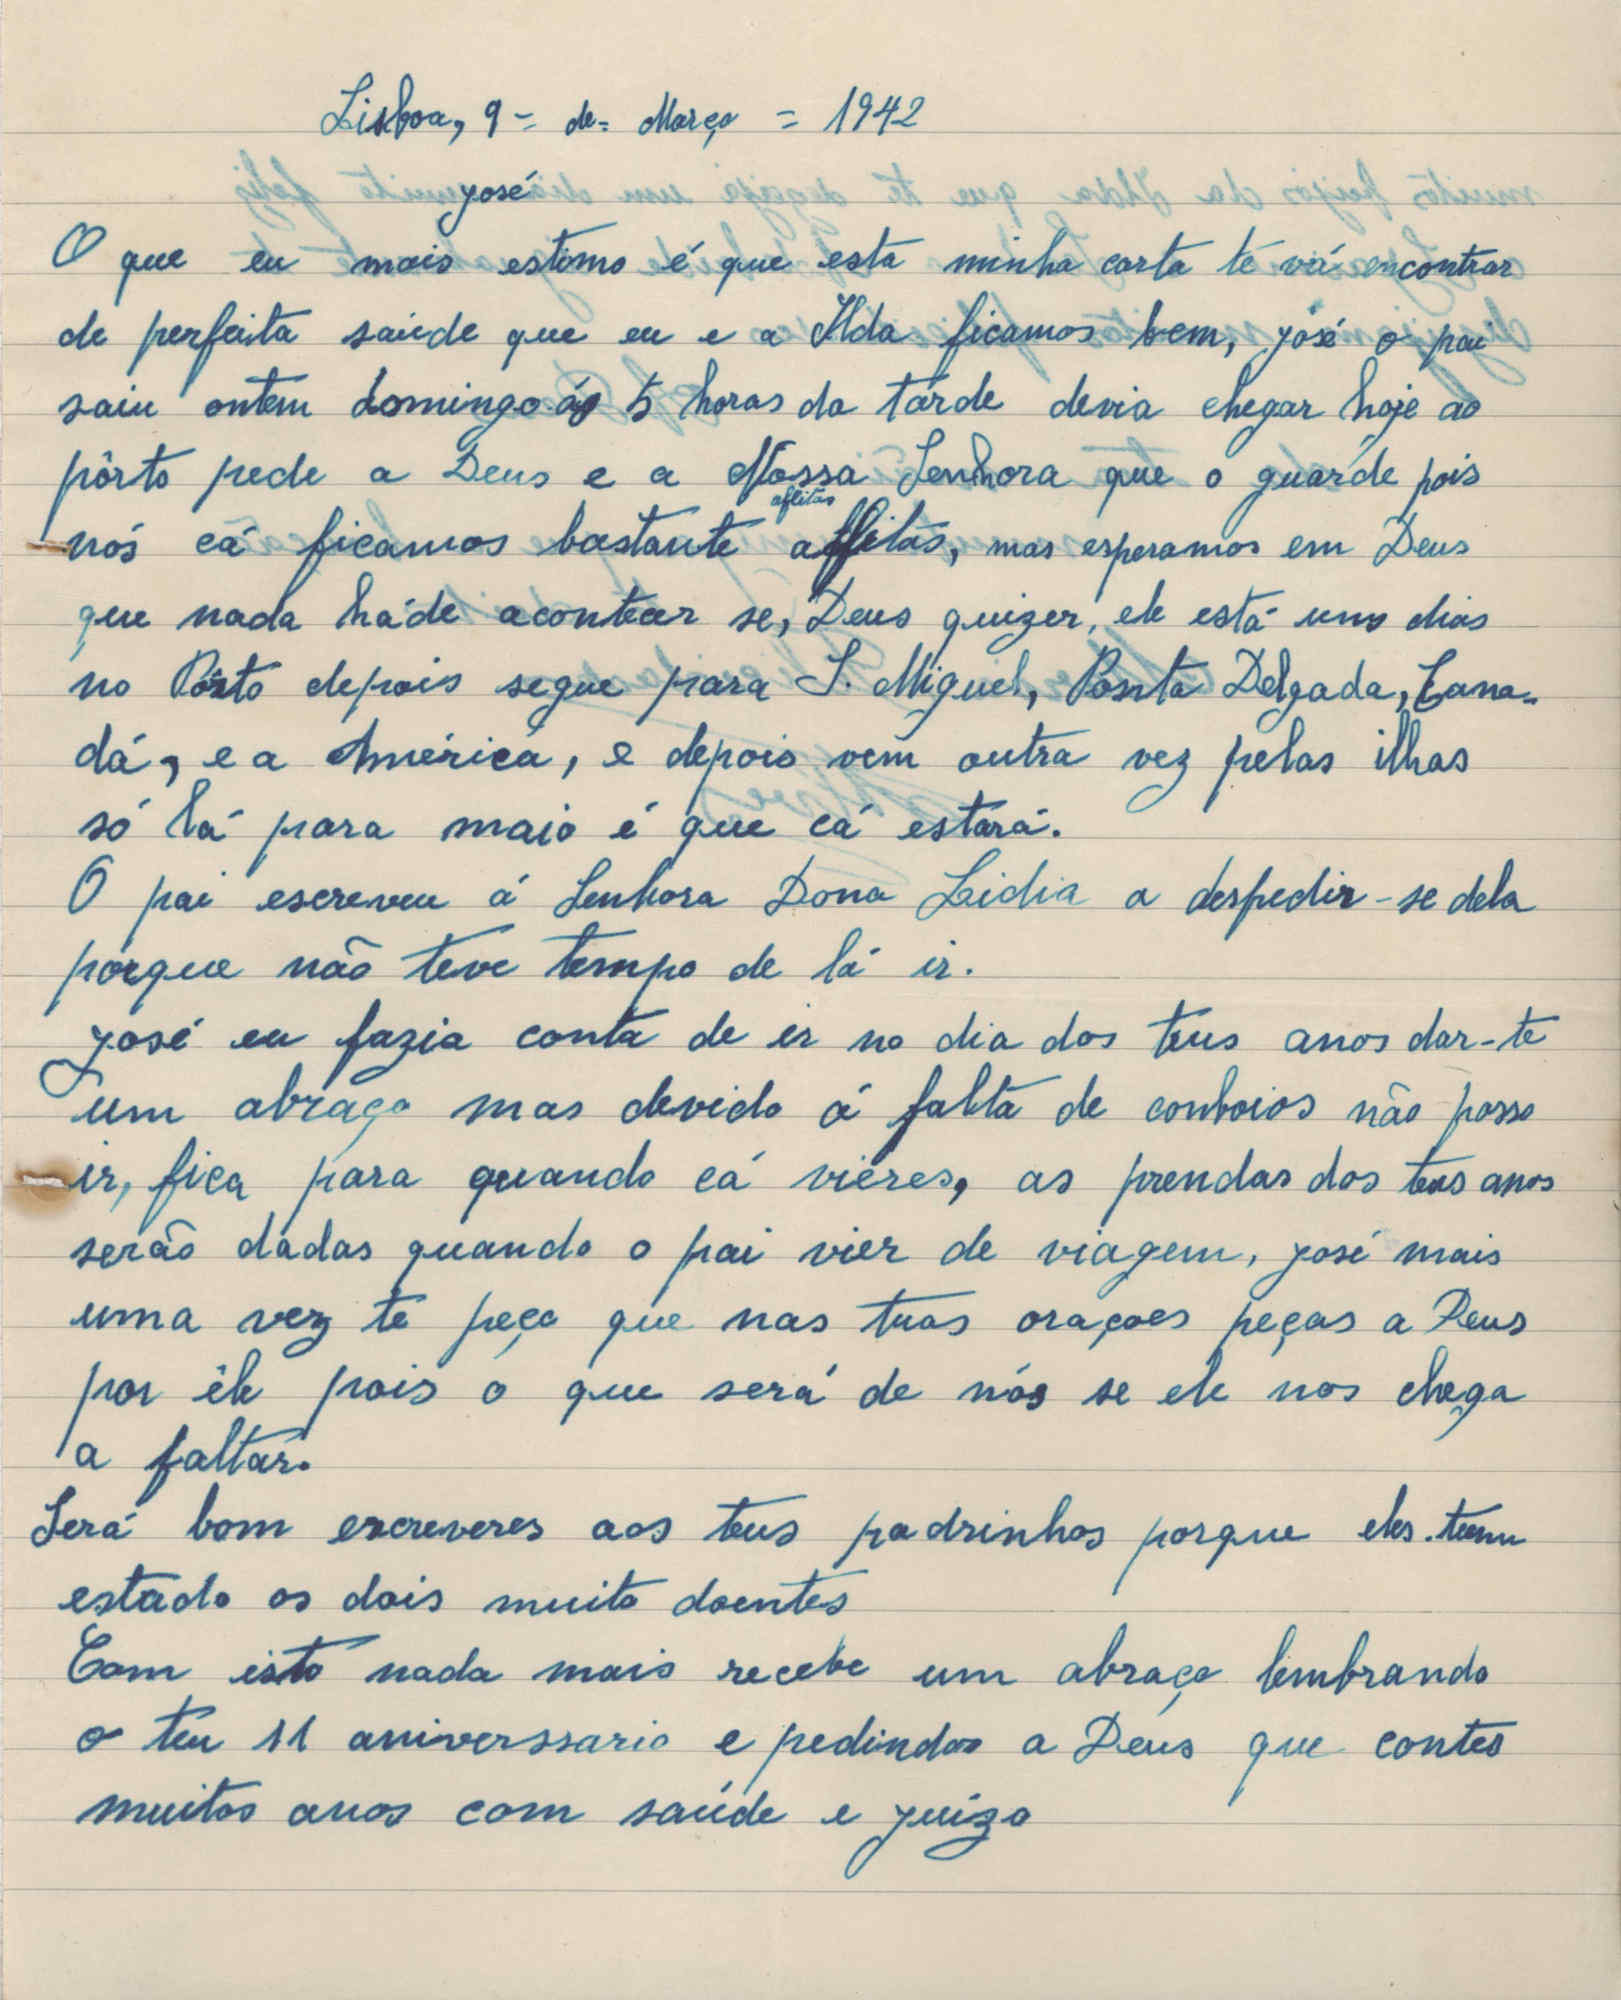 Lisboa, 9 = de = Março = 1942
José
O que eu mais estimo é que esta minha carta te vá encontrar
de perfeita saúde que eu e a Ilda ficamos bem, josé o pai
saiu ontem domingo ás 5 horas da tarde devia chegar hoje ao
pôrto pede a Deus e a Nossa Senhora que o guarde pois
aflitas
nós cá ficamos bastante afflitas, mas esperamos em Deus
que nada háde acontecer se, Deus quizer, ele está uns dias
no Pôrto depois segue para S. Miguel, Ponta Delgada, Cana-
dá, e a América, e depois vem outra vez pelas ilhas
só lá para maio é que cá estará.
O pai escreveu á Senhora Dona Lidia a despedir-se dela
porque não teve tempo de lá ir.
José eu fazia conta de ir no dia dos teus anos dar-te
um abraço mas devido á falta de conboios não posso
ir, fica para quando cá vieres, as prendas dos teus anos
serão dadas quando o pai vier de viagem, josé mais
uma vez te peço que nas tuas oraçoes peças a Deus
por êle pois o que será de nós se ele nos chega
a faltar.
Será bom escreveres aos teus padrinhos porque eles teem
estado os dois muito doentes
Com isto nada mais recebe um abraço lembrando
o teu 11 aniverssario e pedindo a Deus que contes
muitos anos com saúde e juizo